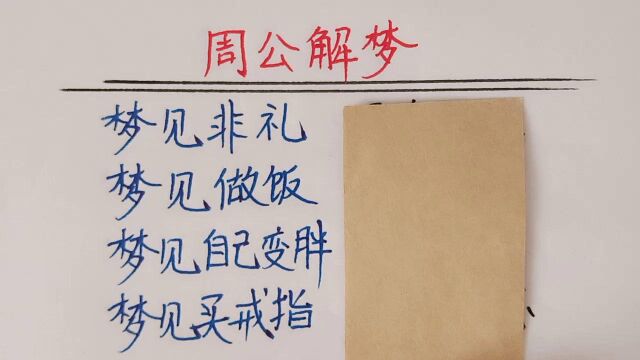 周公解梦
梦见非礼
梦见做饭
梦见自己变胖
梦见买戒指